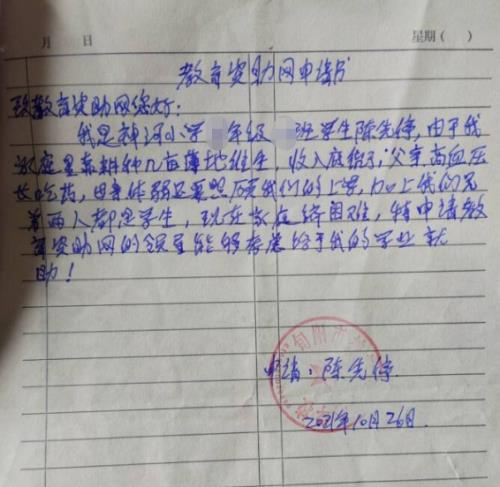 月 日 星期（ ）
教育资助网申请书
致教育资助网您好：
我是神河小学 年级 班学生陈先伟，由于我
家庭里靠耕种几亩薄地维生，收入底，父亲高血压
长吃药，母亲体弱还要照顾我们的上学，加上我们兄
着两人都是学生，现在家庭经困难，特申请教
育资助网的领导能够考虑给于我的学业
助！
申请：陈先伟
2021年10月26日